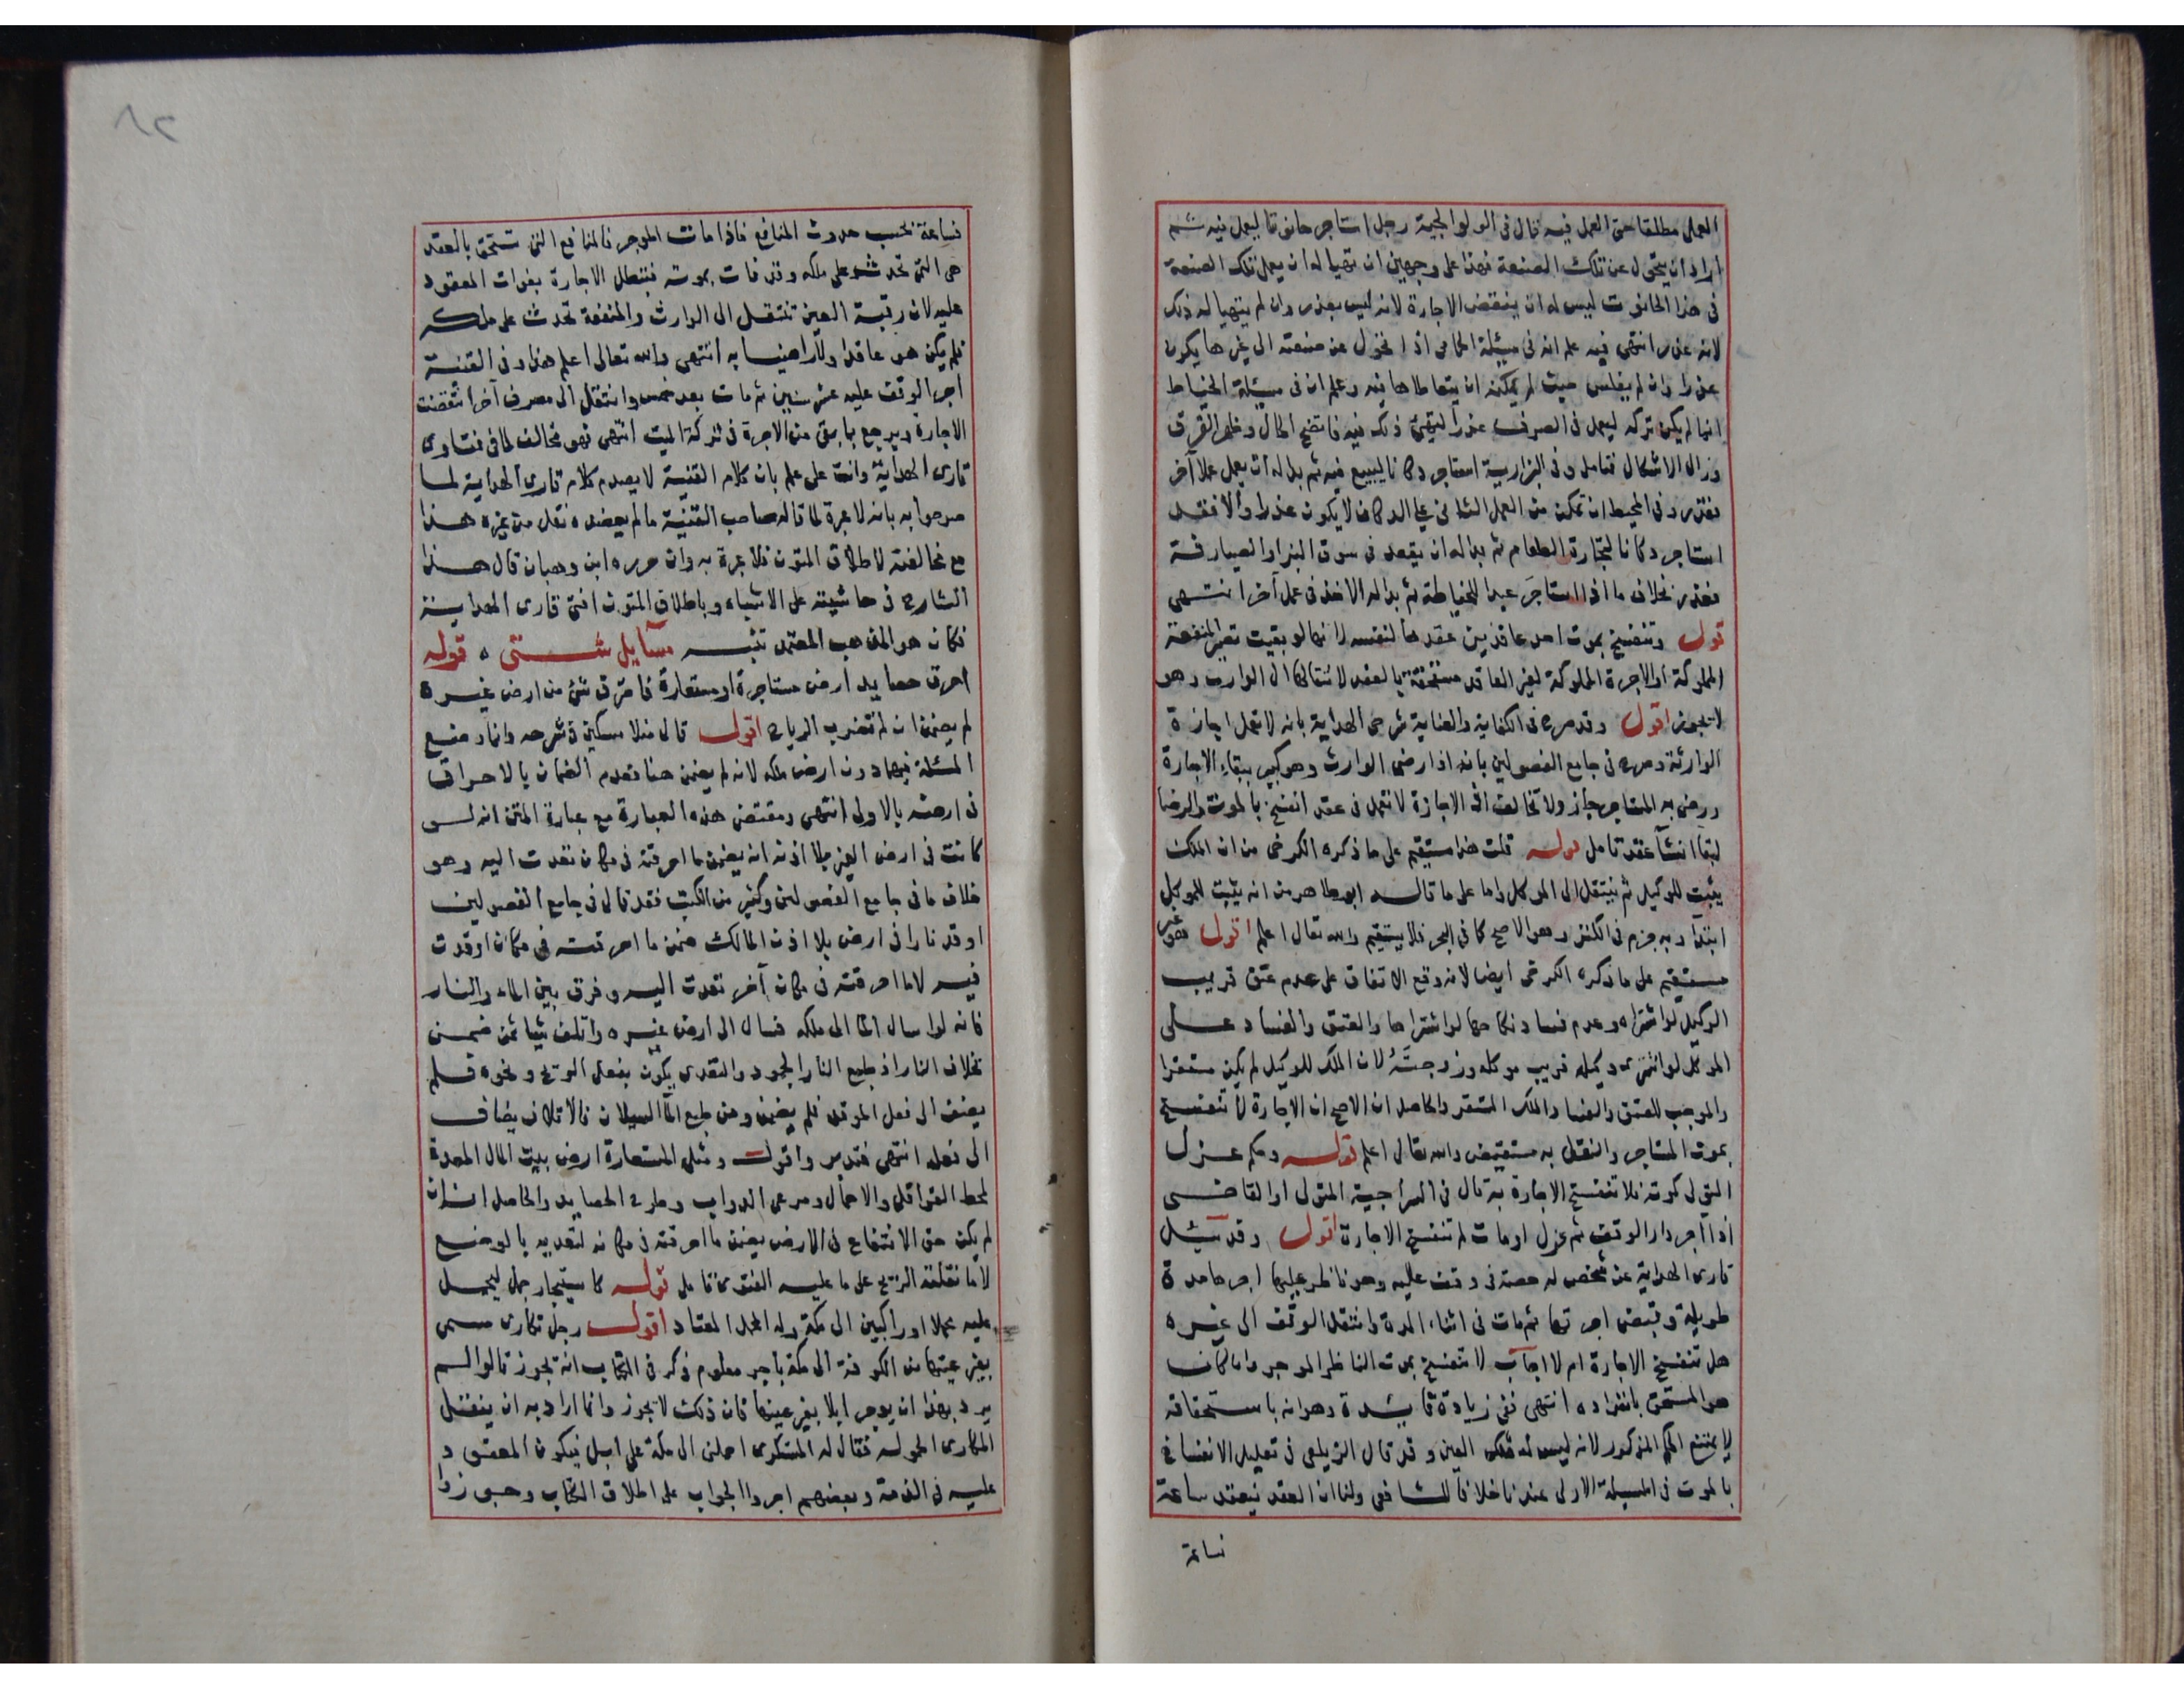 العمل مطلقا حتى العمل فيه قال فى الولوالجية رجل استاجر حانوتا ليعمل فيه ثم
اراد ان يتحول عن تلك الصنعة فهذا على وجهين ان تهيا له ان يعمل تلك الصنعة
فى هذا الحانوت ليس له ان ينقض الاجارة لانه ليس بعذر وان لم يتهيا له ذلك
لانه عذر انتهى فيه علم انه فى مسئلة اذا تحول عن صنعته الى غيرها يكون
عذرا وان لم يفلس حيث لم يمكنه ان يتعاطاها فيه وعلم ان فى مسئلة الخياط
انما لم يكن تركه ليعمل فى الصرف عذرا لتهيئ ذلك فيه فاتضح الحال وظهر الفرق
وزال الاشكال فتامل وفى البزازية استاجر دكانا ليبيع فيه ثم بدا له ان يعمل عملا آخر
فعذر وفى المحيط ان تمكن من العمل الثانى فى الدكان لا يكون عذرا والا فعذر
استاجر دكانا لتجارة الطعام ثم بدا له ان يقعد فى سوق البز او الصيارفة
فعذر بخلاف ما اذا استاجر عبدا للخياطة ثم بدا له الاخذ فى عمل آخر انتهى
قوله وتنفسخ بموت احد عاقدين عقدها لنفسه لانها لو بقيت تصير المنفعة
المملوكة او الاجرة المملوكة لغير العاقد مستحقة بالعقد لانتقالها الى الوارث وهو
لا يجوز اقول وقد صرح فى الكفاية والعناية شرحى الهداية بانه لا تعمل اجازة
الوارثة وصرح فى جامع الفصولين بانه اذا رضى الوارث وهو كبير ببقاء الاجارة
ورضى به المستاجر جاز ولا تخالف اذ الاجازة لا تعمل فى عقد انفسخ بالموت والرضا
لبقا انشآ عقد تامل قوله قلت هذا مستقيم على ما ذكره الكرخى من ان الملك
يثبت للوكيل ثم ينتقل الى الموكل واما على ما قاله ابو طاهر من انه يثبت للموكل
ابتدا وبه جزم فى الكنز وهو الاصح كما فى البحر فلا يستقيم والله تعالى اعلم اقول هو غير
مستقيم على ما ذكره الكرخى ايضا لانه وقع الاتفاق على عدم عتق قريب
الوكيل لو اشتراه وعدم فساد نكاحها لو اشتراها والعتق والفساد على
الموكل لو اشترى وكيله قريب موكله وزوجته لان الملك للوكيل لم يكن مستقرا
والموجب للعتق والفساد الملك المستقر والحاصل ان الاصح ان الاجارة لا تنفسخ
بموت المستاجر والنقل به مستفيض والله تعالى اعلم قوله وحكم عزل
المتولى كموته فلا تنفسخ الاجارة به قال فى السراجية المتولى او القاضى
اذا آجر دار الوقف ثم عزل او مات لم تنفسخ الاجارة اقول وقد سئل
قارى الهداية عن شخص له حصة فى وقف عليه وهو ناظر عليها اجرها مدة
طويلة وقبض اجرتها ثم مات فى اثناء المدة وانتقل الوقف الى غيره
هل تنفسخ الاجارة ام لا اجاب لا تنفسخ بموت الناظر الموجر وان كان
هو المستحق بانفراده انتهى ففى زيادة فائدة وهو انه باستحقاقه
لا يمتنع الحكم المذكور لانه ليس له ملك العين وقد قال الزيلعى فى تعليل الانفساخ
بالموت فى المسئلة الاولى عندنا خلافا للشافعى ولنا ان العقد ينعقد ساعة
فساعة
٨٢
فساعة بحسب حدوث المنافع فاذا مات الموجر فالمنافع التى تستحق بالعقد
هى التى تحدث على ملكه وقد فات بموته فتبطل الاجارة بفوات المعقود
عليه لان رقبة العين تنتقل الى الوارث والمنفعة تحدث على ملكه
فلم يكن هو عاقدا ولا راضيا به انتهى والله تعالى اعلم هذا وفى القنية
اجر الوقف عليه عشر سنين ثم مات بعد خمس وانتقل الى مصرف آخر انتقضت
الاجارة ويرجع بما بقى من الاجرة فى تركة الميت انتهى فهو مخالف لما فى فتاوى
قارى الهداية وانت على علم بان كلام القنية لا يصدم كلام قارى الهداية لما
صرحوا به بانه لا عبرة لما قاله صاحب القنية ما لم يعضده نقل من غيره هذا
مع مخالفته لاطلاق المتون فلا عبرة به وان حرره ابن وهبان قال هذا
الشارح فى حاشيته على الاشباه وباطلاق المتون افتى قارى الهداية
فكان هو المذهب المعتمد تنبه مسايل شتى ٥ قوله
احرق حصايد ارض مستاجرة او مستعارة فاحترق شئ من ارض غيره
لم يضمن ان لم تضرب الرياح اقول قال منلا مسكين فى شرحه وانما وضع
المسئلة فيها دون ارض ملكه لانه لم يضمن هنا فعدم الضمان بالاحراق
فى ارضه بالاولى انتهى ومقتضى هذه العبارة مع عبارة المتن انه لو
كانت فى ارض الغير بلا اذنه انه يضمن ما احرقته فى مكان تعدت اليه وهو
خلاف ما فى جامع الفصولين وكثير من الكتب فقد قال فى جامع الفصولين
اوقد نارا فى ارض بلا اذن المالك ضمن ما احرقته فى مكان اوقدت
فيه لا ما احرقته فى مكان آخر تعدت اليه وفرق بين الماء والنار
فانه لو اسال الما الى ملكه فسال الى ارض غيره واتلف شيا ثمن ضمن
بخلاف النار اذ طبع النار الجمود والتعدى يكون بفعل الريح ونحوه فلم
يضف الى فعل الموقد فلم يضمن ومن طبع المآ السيلان فالاتلاف يضاف
الى فعله انتهى فتدبر واقول ومثل المستعارة ارض بيت المال المعدة
لحط القوافل والاحمال ومرعى الدواب وطرح الحصايد والحاصل انه ان
لم يكن حق الانتفاع فى الارض يضمن ما احرقته فى مكانه لتعديه بالوضع
لا ما نقلته الريح على ما عليه الفتوى تامل قوله كاستيجار جمل ليحمل
عليه محملا وراكبين الى مكة وله المحمل المعتاد اقول رجل تكارى مسمى
بغير عينها من الكوفة الى مكة باجر معلوم ذكر فى الكتاب انه يجوز قالوا لم
يرد بهذا ان يوجر ابلا بغير عينها فان ذلك لا يجوز وانما اراد به ان يتقبل
المكارى الحمولة فقال له المستكرى احملنى الى مكة على ابل فيكون المعقود
عليه فى الذمة وبعضهم اجروا الجواب على اطلاق الكتاب وجوزوا